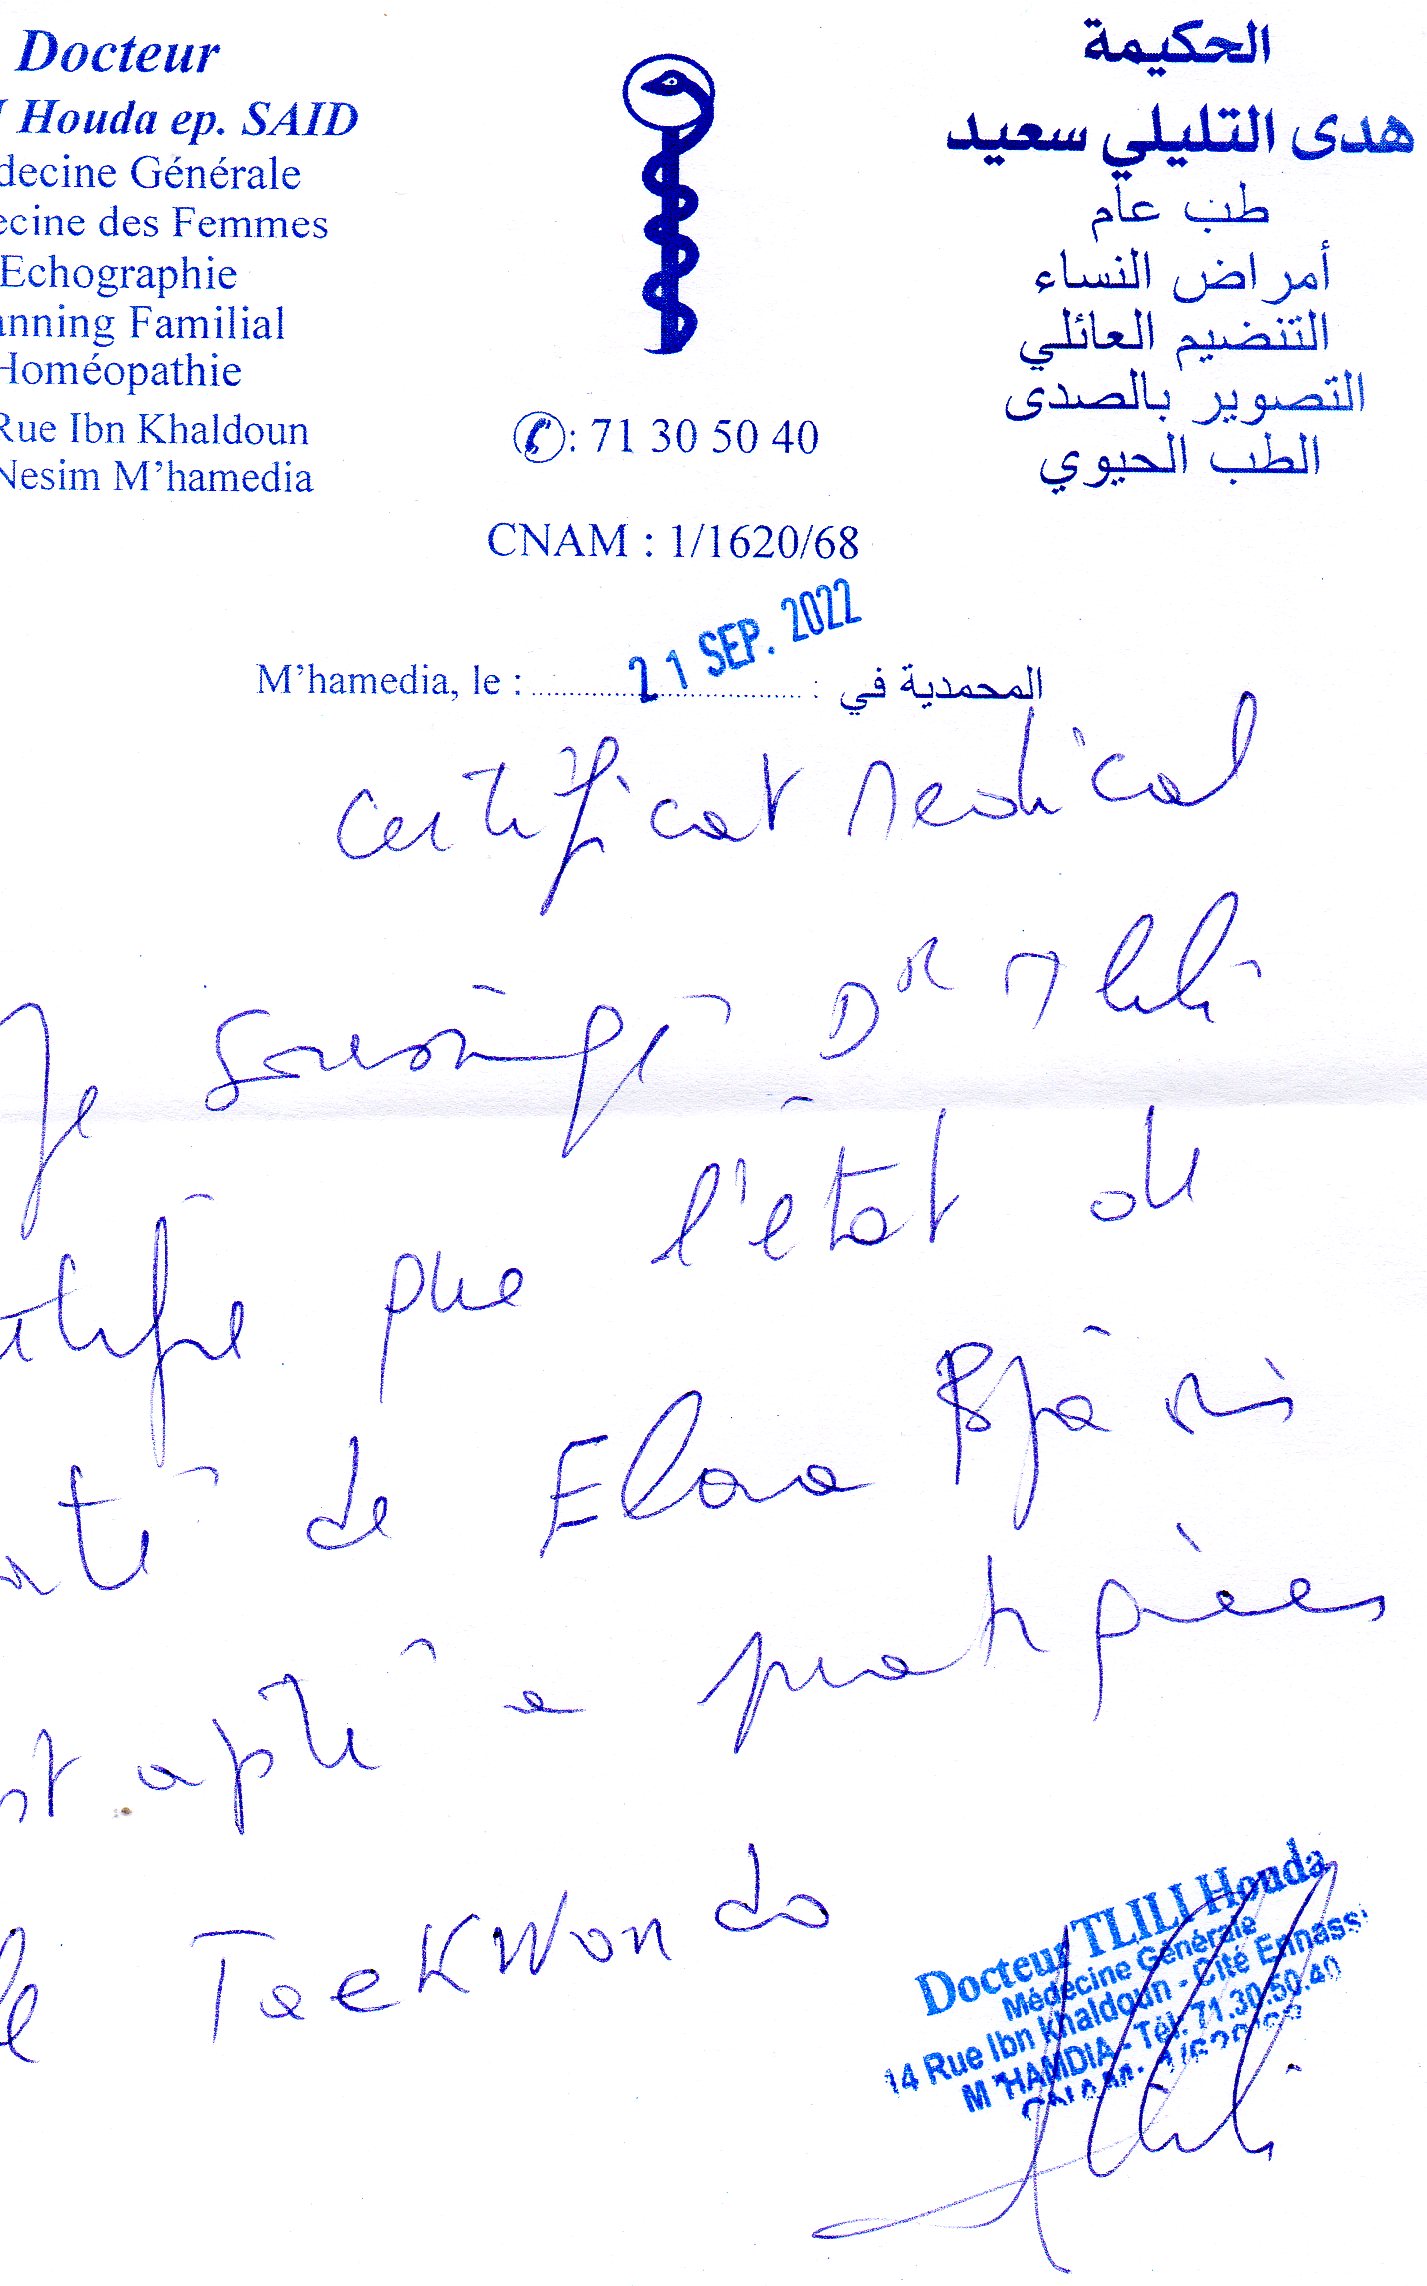 Docteur
Houda ep. SAID
decine Générale
ecine des Femmes
Echographie
anning Familial
Homéopathie
Rue Ibn Khaldoun
Nesim M'hamedia
الحكيمة
هدى التليلي سعيد
طب عام
أمراض النساء
التنضيم العائلي
التصوير بالصدى
الطب الحيوي
: 71 30 50 40
CNAM : 1/1620/68
M'hamedia, le : 21 SEP. 2022 : المحمدية في
Certificat Medical
Je Soussigné Dr Tlili
que l'état de
de Elaa
apte à
de TaeKWondo
Docteur TLILI Houda
Médecine Générale
14 Rue Ibn Khaldoun - Cité Ennassi
M'HAMDIA - Tél: 71.30.50.40